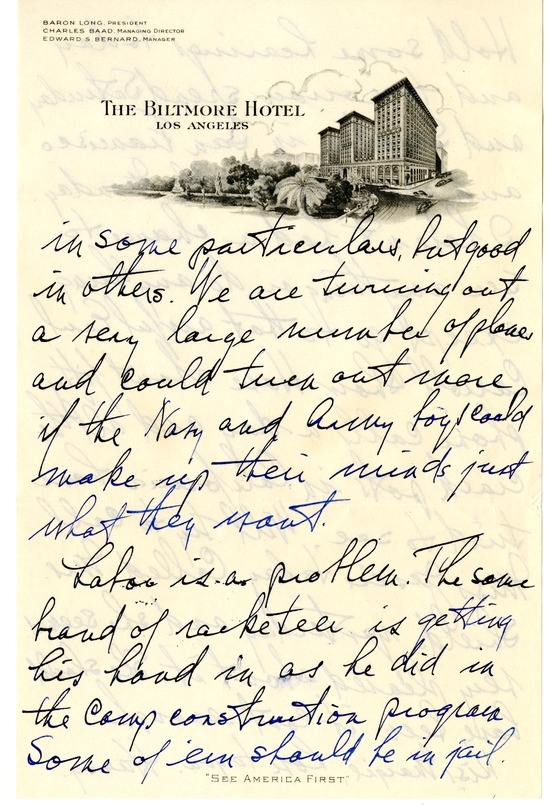 BARON LONG, PRESIDENT
CHARLES BAAD, MANAGING DIRECTOR
EDWARD S BERNARD, MANAGER
THE BILTMORE HOTEL
LOS ANGELES
in some particulars, but good
in others. We are turning out
a very large number of planes
and could turn out more
if the Navy and Army boys could
make up their minds just
what they want.
Labor is a problem. The same
brand of racketeer is getting
his hand in as he did in
the camp construction program
Some of 'em should be in jail.
"SEE AMERICA FIRST"